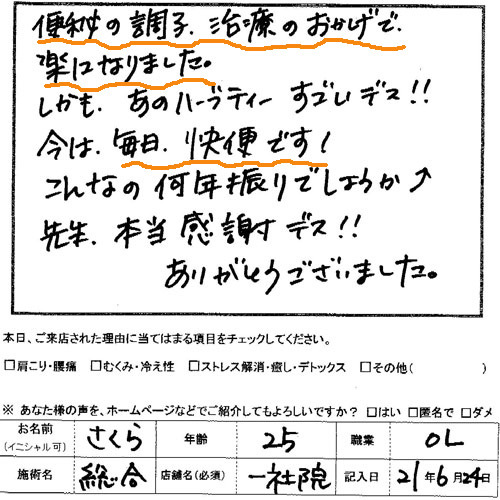 便秘の調子、治療のおかげで、
楽になりました。
しかも、あのハーブティー すごいデス!!
今は、毎日、快便です!
こんなの何年振りでしょうか↑
先生、本当感謝デス!!
ありがとうございました。
本日、ご来店された理由に当てはまる項目をチェックしてください。
□肩こり・腰痛 □むくみ・冷え性 □ストレス解消・癒し・デトックス □その他( )
※ あなた様の声を、ホームページなどでご紹介してもよろしいですか? □はい □匿名で □ダメ
お名前(イニシャル可) さくら 年齢 25 職業 OL
施術名 総合 店舗名(必須) 一社院 記入日 21年6月24日